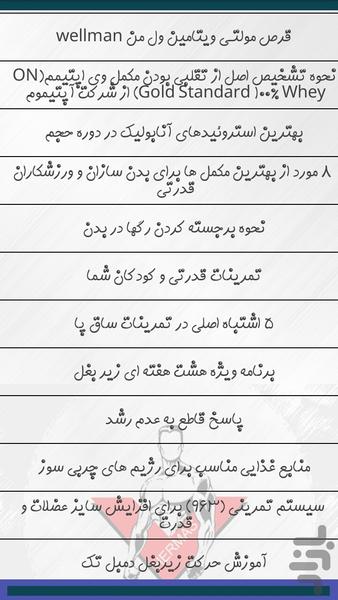 قرص مولتی ویتامین ول من wellman
نحوه تشخیص اصل از تقلبی بودن مکمل وی اپتیمم(ON
Gold Standard )۱۰۰% Whey) از شرکت آپتیموم
بهترین استروئیدهای آنابولیک در دوره حجم
۸ مورد از بهترین مکمل ها برای بدن سازان و ورزشکاران
قدرتی
نحوه برجسته کردن رگها در بدن
تمرینات قدرتی و کودکان شما
۵ اشتباه اصلی در تمرینات ساق پا
برنامه ویژه هشت هفته ای زیر بغل
پاسخ قاطع به عدم رشد
منابع غذایی مناسب برای رژیم های چربی سوز
سیستم تمرینی (۹۶۳) برای افزایش سایز عضلات و
قدرت
آموزش حرکت زیربغل دمبل تک
بازار